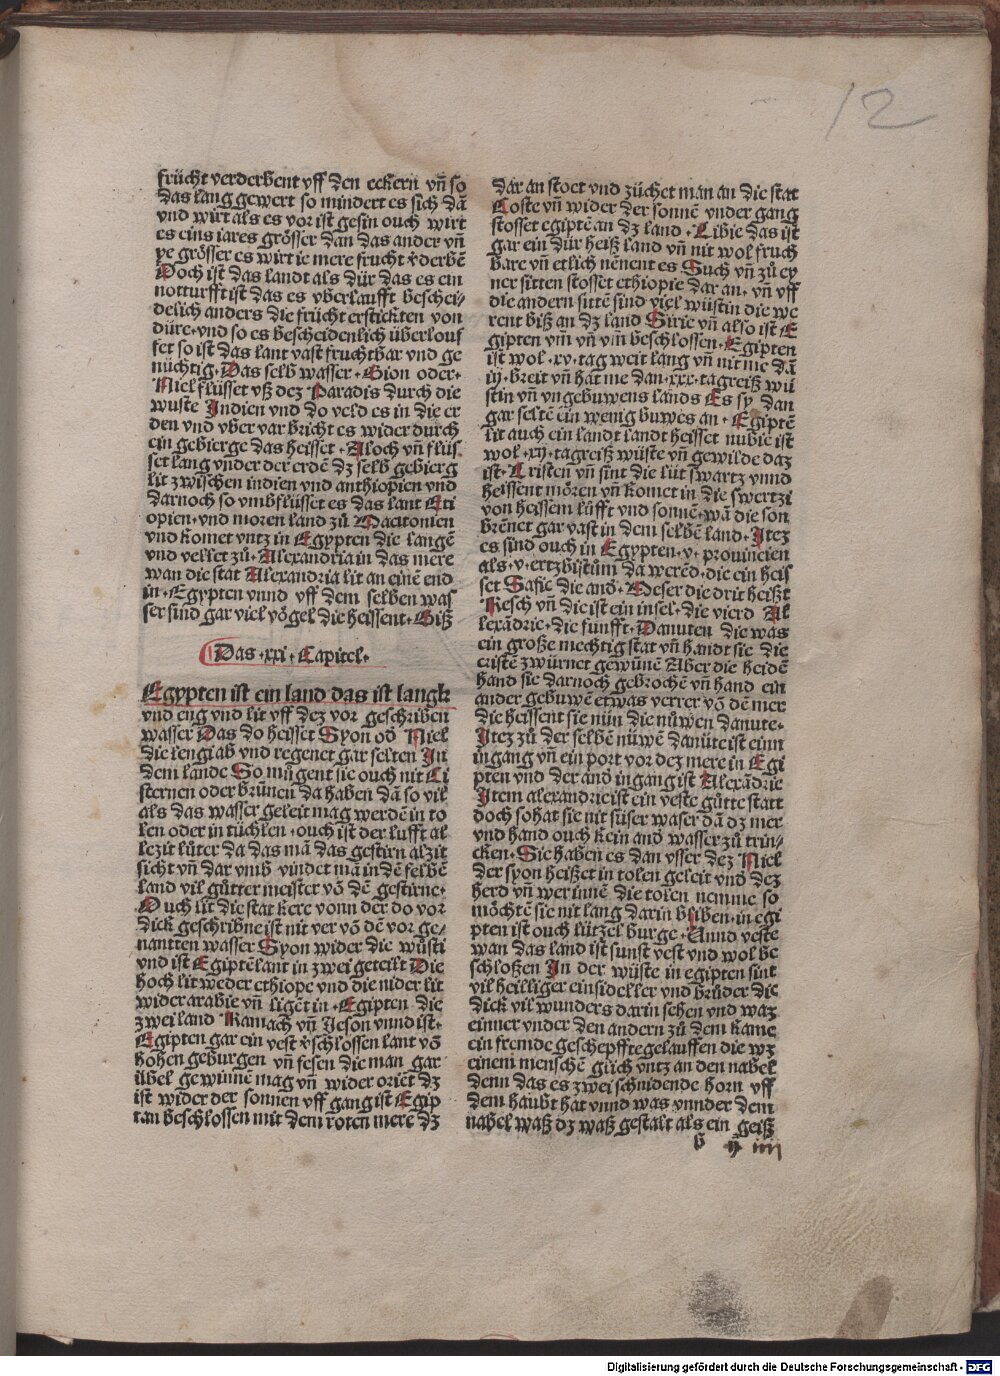 12
frücht verderbent vff den eckern vñ so
das lang gewert so mindert es sich dā
vnd wirt als es vor ist gesin ouch wirt
es eins iares grösser dan das ander vñ
ye grösser es wirt ie mere frucht v̾derbē
Doch ist das landt als dür das es ein
notturfft ist das es vberlaufft beschei⸗
delich anders die frücht erstickten von
düre·vnd so es bescheidenlich überlouf
fet so ist das lant vast fruchtbar vnd ge
nüchtig·Das selb wasser·Gion oder·
Niel flüsset vß dez Paradis durch die
wuste Indien vnd do veld es in die er
den vnd vber var bricht es wider durch
ein gebierge das heisset·Aloch vñ flüs
set lang vnder der erdē dz selb gebierg
lit zwischen indien vnd anthiopien vnd
darnoch so vmbflüsset es das lant Eti
opien·vnd moren land zů Macitonien
vnd komet vntz in Egypten die langē
vnd vellet zů·Alexandria in das mere
wan die stat Alexandria lit an einē end
in·Egypten vnnd vff dem selben was
ser sind gar viel vögel die heissent·Giß
Das·xxi·Capitel·
Egypten ist ein land das ist langk
vnd eng vnd lit vff dez vor geschriben
wasser Das do heisset Syon oď Niel
die lengi ab vnd regenet gar selten In
dem lande So mügent sie ouch nit Ci
sternen oder brünnen da haben dā so vil
als das wasser geleit mag werdē in to
len oder in tüchlen·ouch ist der lufft al
lezit lüter da das mā das gestirn alzit
sicht vñ dar vmb vindet mā in dē selbē
land vil gütter meister vō dē gestirne·
Ouch lit die stat kere vonn der do vor
dick geschribne ist nit ver vō dē vor ge⸗
nantten wasser Syon wider die wüsti
vnd ist Egiptē lant in zwei geteilt Die
hoch lit weder ethiope vnd die nider lit
wider arabie vñ ligēt in·Egipten die
zwei land Ramach vñ Jeson vnnd ist·
Egipten gar ein vest v̾schlossen lant vō
hohen geburgen vñ fesen die man gar
übel gewinnē mag vñ wider oriēt dz
ist wider der sonnen vff gang ist Egip
tan beschlossen mit dem roten mere dz
dar an stoet vnd züchet man an die stat
Coste vñ wider der sonnē vnder gang
stosset egiptē an dz land·Libie das ist
gar ein dür heiß land vñ nit wol fruch
bare vñ etlich nēnent es Such vñ zů ey
ner sitten stosset ethiopie dar an·vñ vff
die andern sittē sind viel wüstin die we
rent biß an dz land Sirie vñ also ist E
gipten vm̄ vñ vm̄ beschlossen·Egipten
ist wol·xv·tag weit lang vñ nit me dā
iij·breit vñ hat me dan·xxx·tagreiß wü
stin vñ vngebuwens lands Es sy dan
gar seltē ein wenig buwes an·Egiptē
lit auch ein landt landt heisset nubie ist
wol·xij·tagreiß wüste vñ gewilde daz
ist·Cristen vñ sint die lüt swartz vnnd
heissent mören vñ komet in die swertzi
von heissem lüfft vnd sonnē·wā die son
brēnet gar vast in dem selbē land·Itez
es sind ouch in Egypten·v·prouincien
als·v·ertzbistům da werēd·die ein heis
set Sasie die anď·Meser die drit heißt
Resch vñ die ist ein insel·die vierd Al
lexādrie·die funfft·Danuten die was
ein große mechtig stat vñ handt sie die
cristē zwürnet gewünē Aber die heidē
hand sie darnoch gebrochē vñ hand ein
ander gebuwē etwas verrer vō dē mer
die heissent sie nün die nüwen danute·
Itez zů der selbē nüwē danüte ist einn
ingang vñ ein port vor dez mere in Egi
pten vnd der anď ingang ist Alexādrie
Item alexandrie ist ein veste gůtte statt
doch so hat sie nit süser waser dā dz mer
vnd hand ouch kein anď wasser zů trin⸗
cken·Sie haben es dan vsser dez Niel
der syon heißet in tolen geleit vnď dez
herd vñ wer innē die tolen nemme so
möchtē sie nit lang darin bliben·in egi
pten ist ouch lützel burge·Vnnd veste
wan das land ist sunst vest vnd wol be
schloßen In der wüste in egipten sint
vil heilliger einsideller vnd brüder die
dick vil wunders darin sehen vnd waz
einner vnder den andern zů dem kame
ein fremde geschepffte gelauffen die wz
einem menschē glich vntz an den nabel
denn das es zwei schnidende horn vff
dem haubt hat vnnd was vnnder dem
nabel waß dz waß gestalt als ein geiß
b
Digitalisierung gefördert durch die Deutsche Forschungsgemeinschaft - DFG